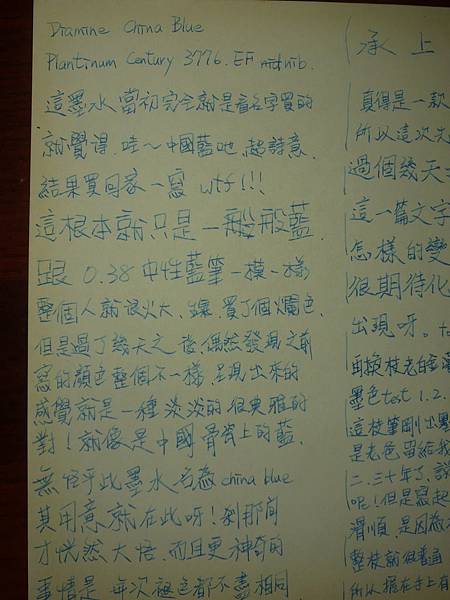 Diamine China Blue
Plantinum Century 3776. EF nib.
這墨水當初完全就是看名字買的
就覺得.哇~中國藍吔,超詩意.
結果買回家一寫 wtf!!!
這根本就只是一般般藍.
跟 0.38 中性藍筆一模一樣
整個人就很火大.錢.買了個爛色.
但是過了幾天之後,偶然發現之前
寫的顏色整個不一樣,呈現出來的
感覺就是一種淡淡的很典雅的
對!就像是中國骨瓷上的藍.
無怪乎此墨水名為 china blue
其用意就在此呀!剎那間
才恍然大悟.而且更神奇的
事情是.每次褪色都不盡相同
承上
真得是一款
所以這次先
過個幾天
這一篇文字
怎樣的變
很期待化
出現呀。
再換枝老的
墨色test 1.2.
這枝筆剛出
是老爸留給我
二.三十年了,
呢!但是寫起
滑順,是因為
整枝就很普通
所以握在手上有